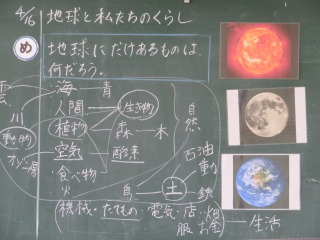 4/16 地球と私たちのくらし
め 地球にだけあるものは、
何だろう。
雲 海 青
川 人間 生き物
動物 植物 森 木 自然
オゾン層 空気 酸素 石油
・食べ物 動
火 鳥 土 鉄
(機械・たてもの・電気・店・畑
服 お金) 生活